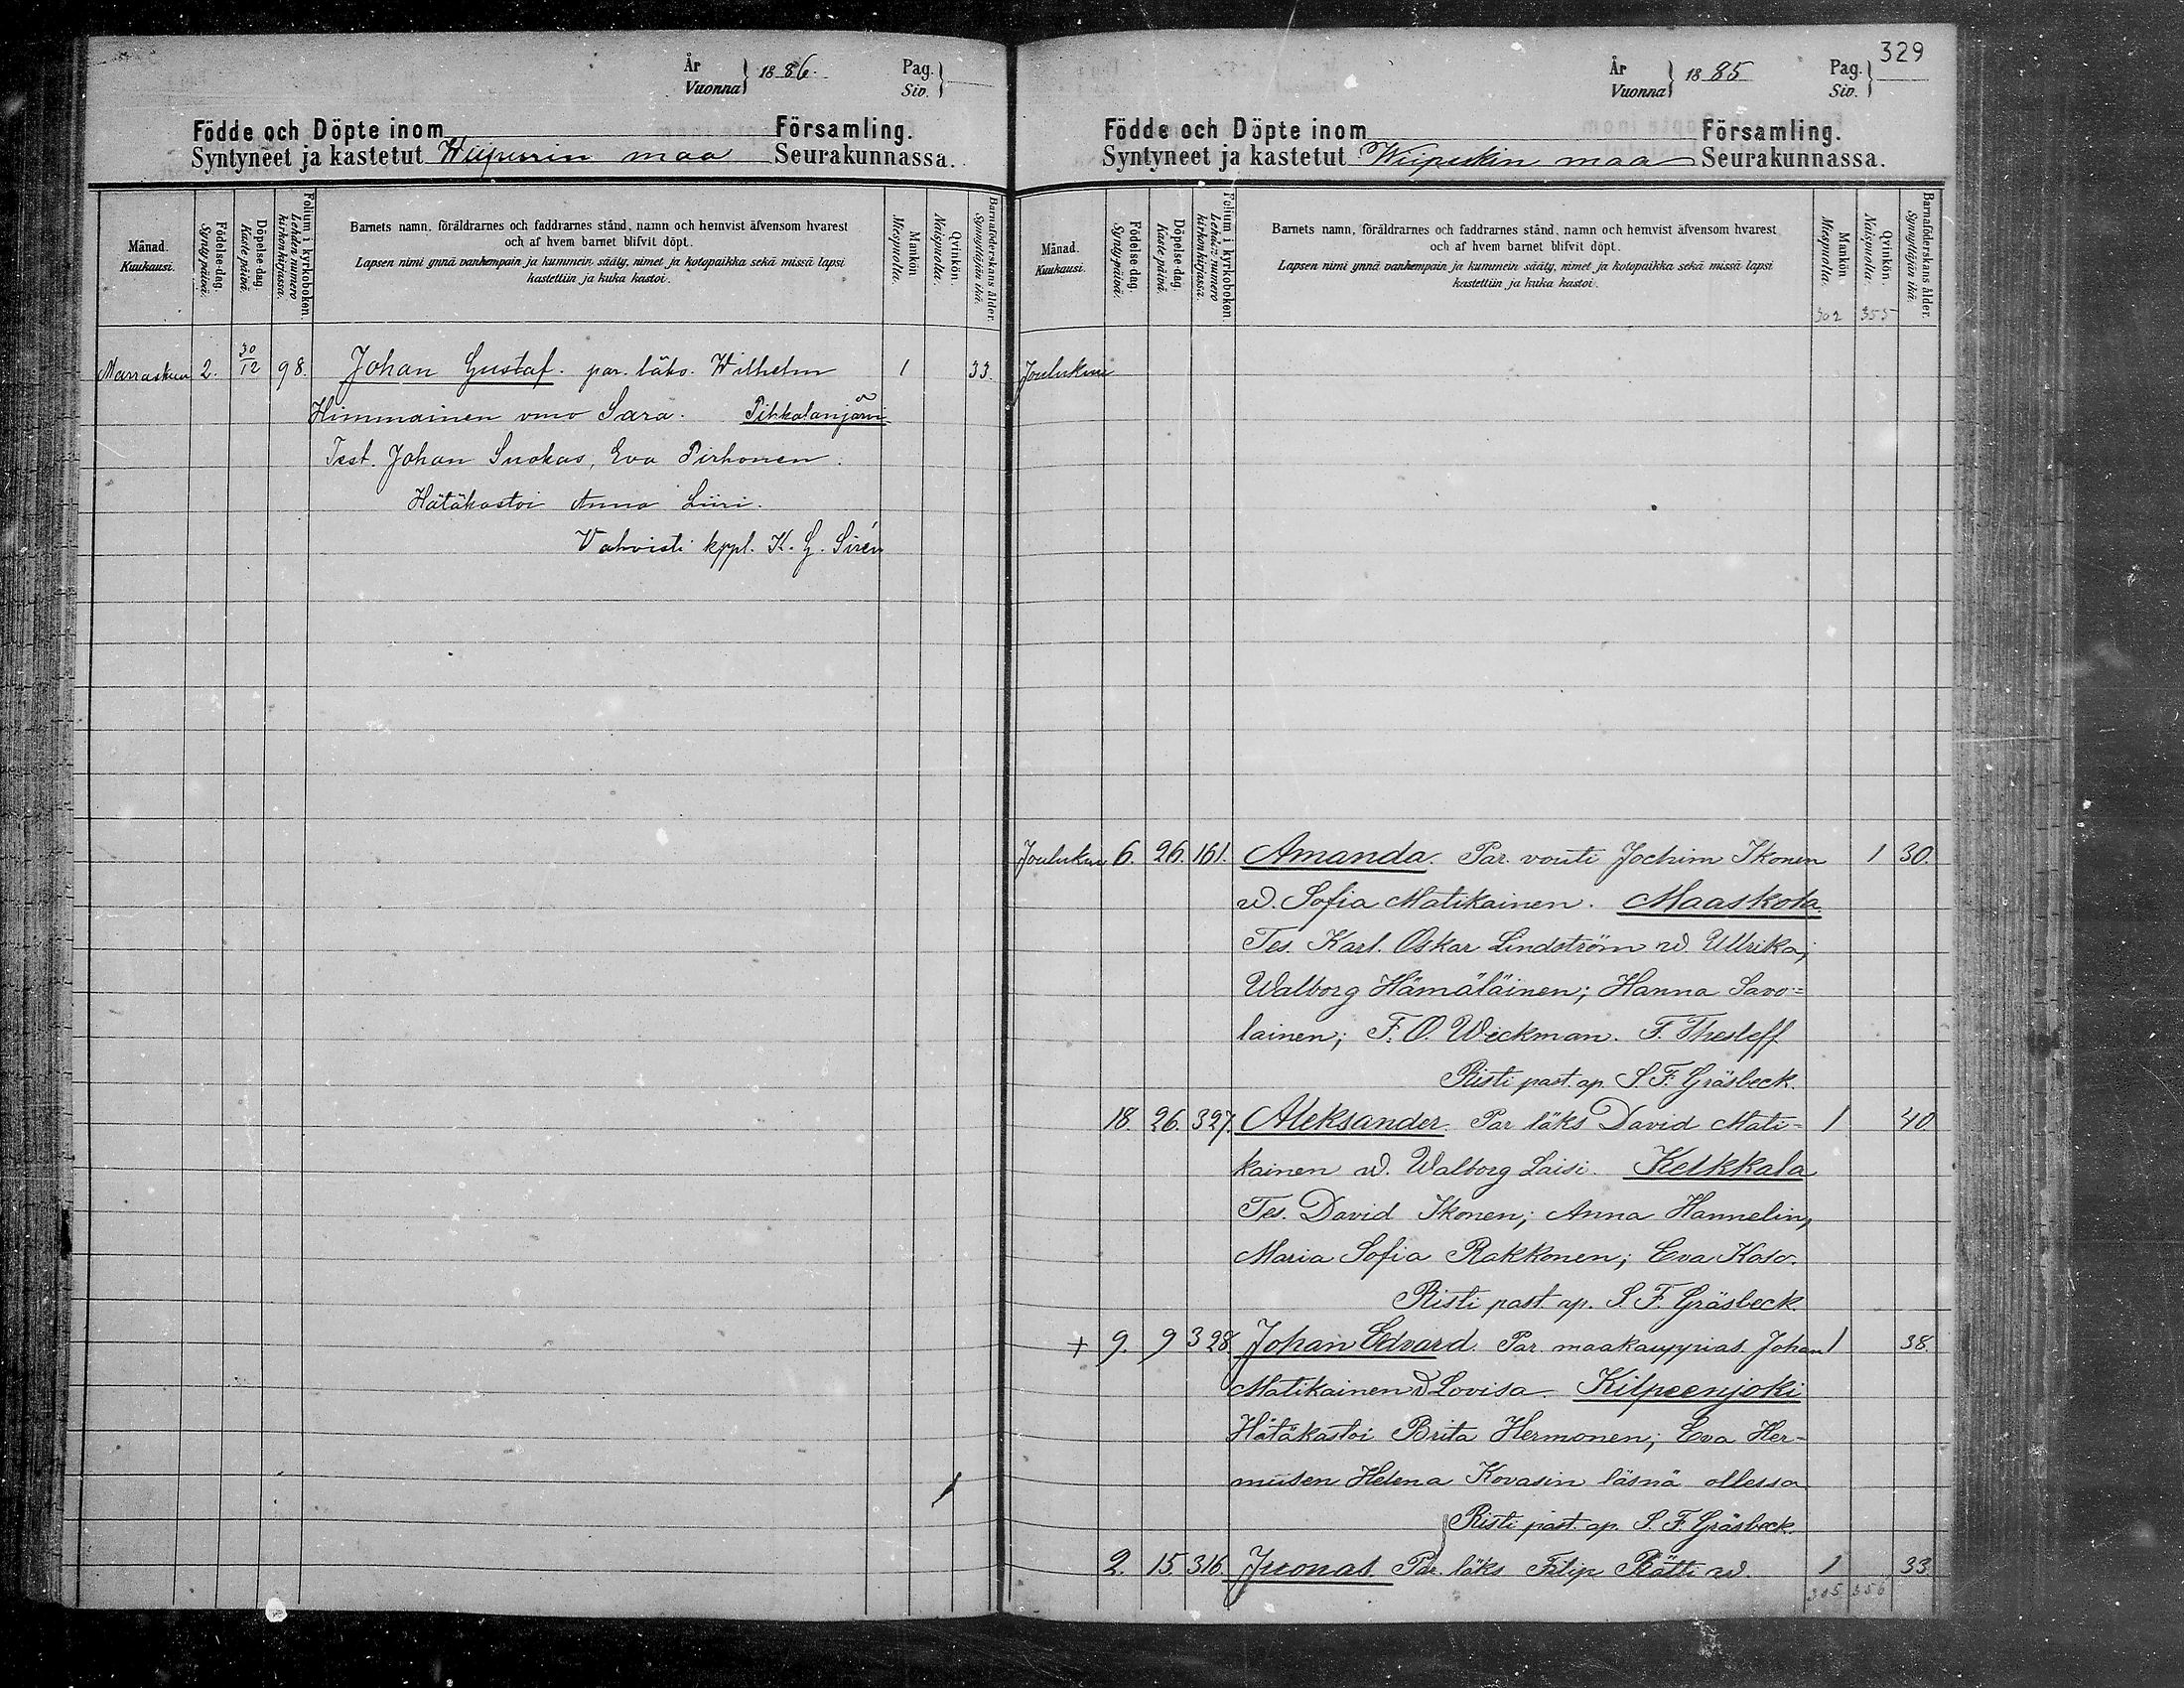 År
Vuonna } 1886. Pag.
Siv. }
Födde och Döpte inom Församling.
Syntyneet ja kastetut Wiipurin maa Seurakunnassa.
Månad.
Kuukausi.
Födelse-dag.
Syntypäivä.
Döpelse-dag.
Kastepäivä.
Folium i kyrkoboken.
Lehden numero kirkonkirjassa.
Barnets namn, föräldrarnes och faddrarnes stånd, namn och hemvist äfvensom hvarest
och af hvem barnet blifvit döpt.
Lapsen nimi ynnä vanhempain ja kummein sääty, nimet ja kotopaikka sekä missä lapsi
kastettiin ja kuka kastoi.
Mankön.
Miespuolta.
Qvinkön.
Naispuolta.
Barnaföderskans ålder.
Synnyttäjän ikä.
Marraskuu 2. 30/12 98. Johan Gustaf. par. läks. Wilhelm 1 33.
Himmainen vmo Sara. Pihkalanjärvi
Test. Johan Suokas, Eva Pirhonen.
Hätäkastoi Anna Liiri.
Vahvisti kppl. K. G. Sirén
329
År
Vuonna } 1885 Pag.
Siv. }
Födde och Döpte inom Församling.
Syntyneet ja kastetut Wiipurin maa Seurakunnassa.
Månad.
Kuukausi.
Födelse-dag.
Syntypäivä.
Döpelse-dag.
Kastepäivä.
Folium i kyrkoboken.
Lehden numero kirkonkirjassa.
Barnets namn, föräldrarnes och faddrarnes stånd, namn och hemvist äfvensom hvarest
och af hvem barnet blifvit döpt.
Lapsen nimi ynnä vanhempain ja kummein sääty, nimet ja kotopaikka sekä missä lapsi
kastettiin ja kuka kastoi.
Mankön.
Miespuolta.
Qvinkön.
Naispuolta.
Barnaföderskans ålder.
Synnyttäjän ikä.
302 355
Joulukuu
Joulukuu 6. 26. 161. Amanda. Par. vouti Jochim Ikonen 1 30.
w. Sofia Matikainen. Maaskola.
Tes. Karl. Oskar Lindström w. Ullrika;
Walborg Hämäläinen; Hanna Savo=
lainen; F. O. Wickman. F. Thesleff
Risti past. ap. S. F. Gräsbeck.
18. 26. 327. Aleksander. Par läks David Mati= 1 40.
kainen w. Walborg Laisi. Kelkkala
Tes. David Ikonen; Anna Hannelin,
Maria Sofia Rakkonen; Eva Koso.
Risti past. ap. S. F. Gräsbeck.
+ 9. 9 328. Johan Edvard. Par. maakauppias. Johan 1 38.
Matikainen w Lovisa. Kilpeenjoki
Hätäkastoi Brita Hermonen; Eva Her-
musen Helena Kovasin läsnä ollessa
Risti past. ap. S. F. Gräsbeck.
2. 15. 316. Juonas. Par. läks Filip Rätti w. 1 33
305 356